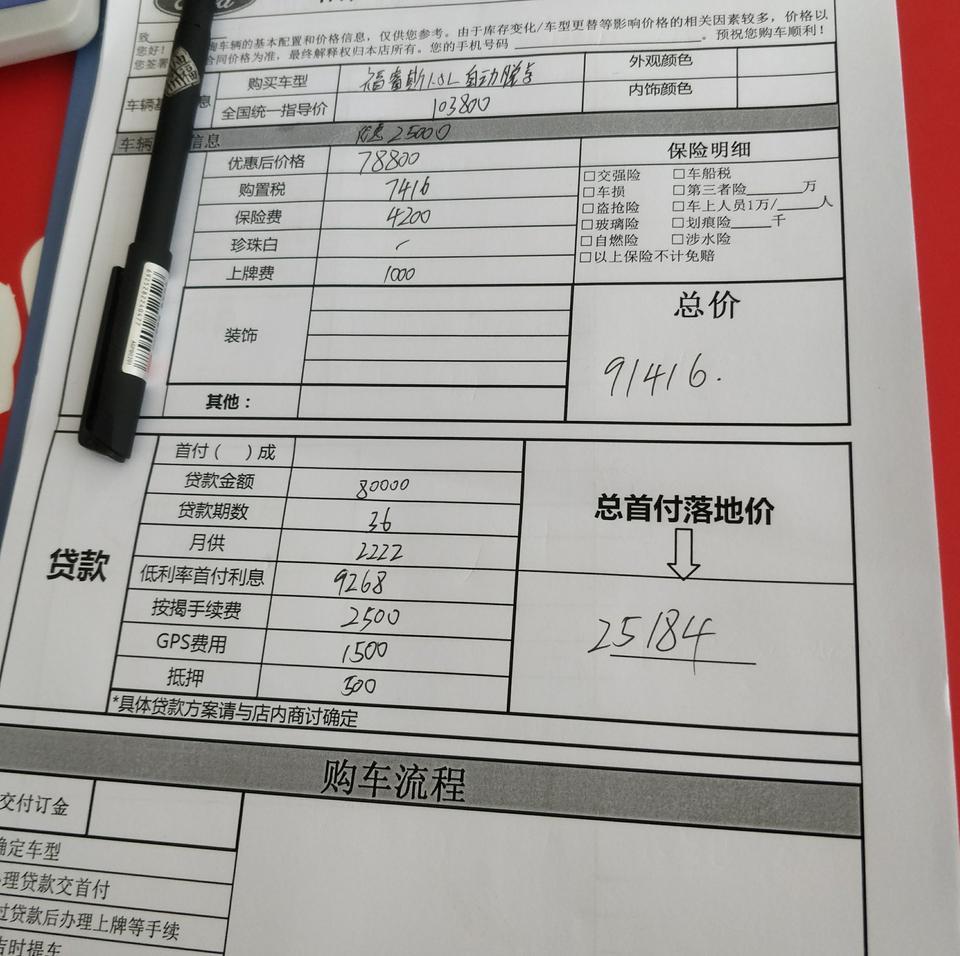 致
您好！
购车辆的基本配置和价格信息，仅供您参考。由于库存变化/车型更替等影响价格的相关因素较多，价格以
合同价格为准，最终解释权归本店所有。您的手机号码____________________。预祝您购车顺利！
您签署
购买车型 福睿斯1.0L自动 外观颜色
全国统一指导价 103800 内饰颜色
车辆 信息 优惠25000
优惠后价格 78800
购置税 7416
保险费 4200
珍珠白
上牌费 1000
装饰
其他：
保险明细
□交强险 □车船税
□车损 □第三者险______万
□盗抢险 □车上人员1万/____人
□玻璃险 □划痕险____千
□自燃险 □涉水险
□以上保险不计免赔
总价
91416.
贷款
首付（ ）成
贷款金额 80000
贷款期数 36
月供 2222
低利率首付利息 9268
按揭手续费 2500
GPS费用 1500
抵押 500
*具体贷款方案请与店内商讨确定
总首付落地价
25184
购车流程
交付订金
确定车型
办理贷款交首付
过贷款后办理上牌等手续
吉时提车
6935282240477